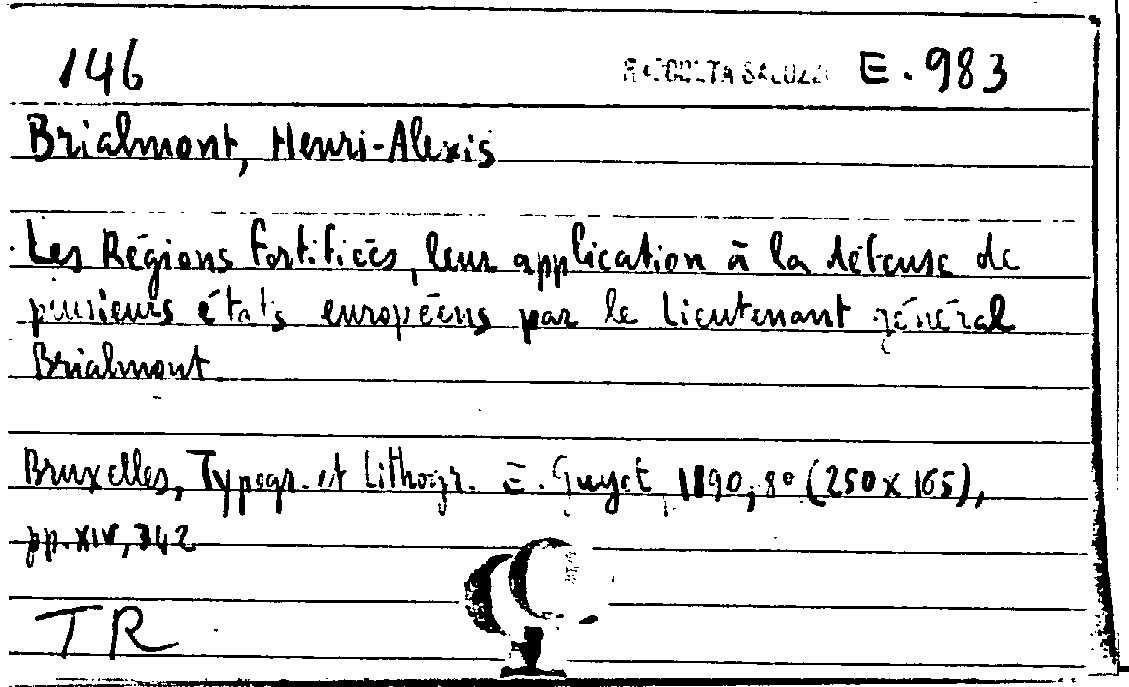 146 RACCOLTA SALUZZO E. 983
Brialmont, Henri-Alexis
Les Régions fortifiées, leur application à la défense de
plusieurs états européens par le Lieutenant général
Brialmont
Bruxelles, Typogr. et Lithogr. E. Guyot, 1890, 8° (250x165),
pp. XIV, 342
TR